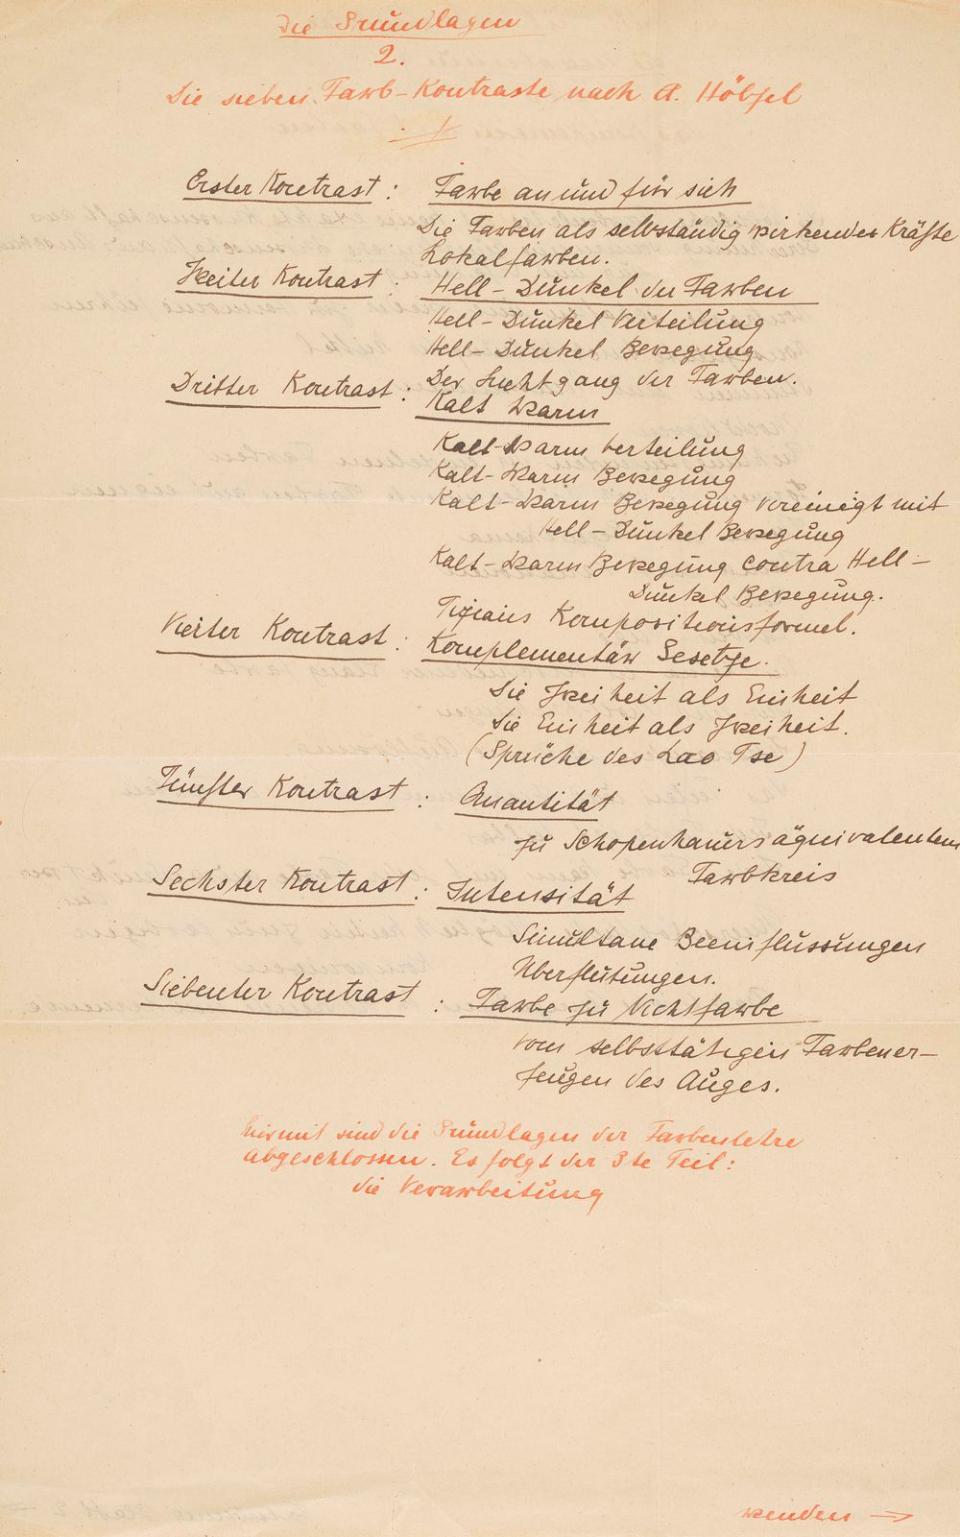 Die Grundlagen
2.
Die sieben Farb-Kontraste nach A. Hölzel
Erster Kontrast: Farbe an und für sich
Die Farben als selbständig wirkender Kräfte
Lokalfarben.
Zweiter Kontrast: Hell-Dunkel der Farben
Hell-Dunkel Verteilung
Hell-Dunkel Bewegung
Der Lichtgang der Farben.
Dritter Kontrast: Kalt Warm
Kalt-Warm Verteilung
Kalt-Warm Bewegung
Kalt-Warm Bewegung vereinigt mit
Hell-Dunkel Bewegung
Kalt-Warm Bewegung contra Hell-
Dunkel Bewegung.
Tizians Kompositionsformel.
Vierter Kontrast: Komplementär Gesetze.
Die Zweiheit als Einheit
Die Einheit als Zweiheit.
(Sprüche des Lao Tse)
Fünfter Kontrast: Quantität
zu Schopenhauers äquivalentem
Farbkreis
Sechster Kontrast: Intensität
Simultane Beeinflussungen
Überflutungen.
Siebenter Kontrast: Farbe zu Nichtfarbe
vom selbsttätigen Farbener-
zeugen des Auges.
hiermit sind die Grundlagen der Farbenlehre
abgeschlossen. Es folgt der 3te Teil:
die Verarbeitung
wenden →